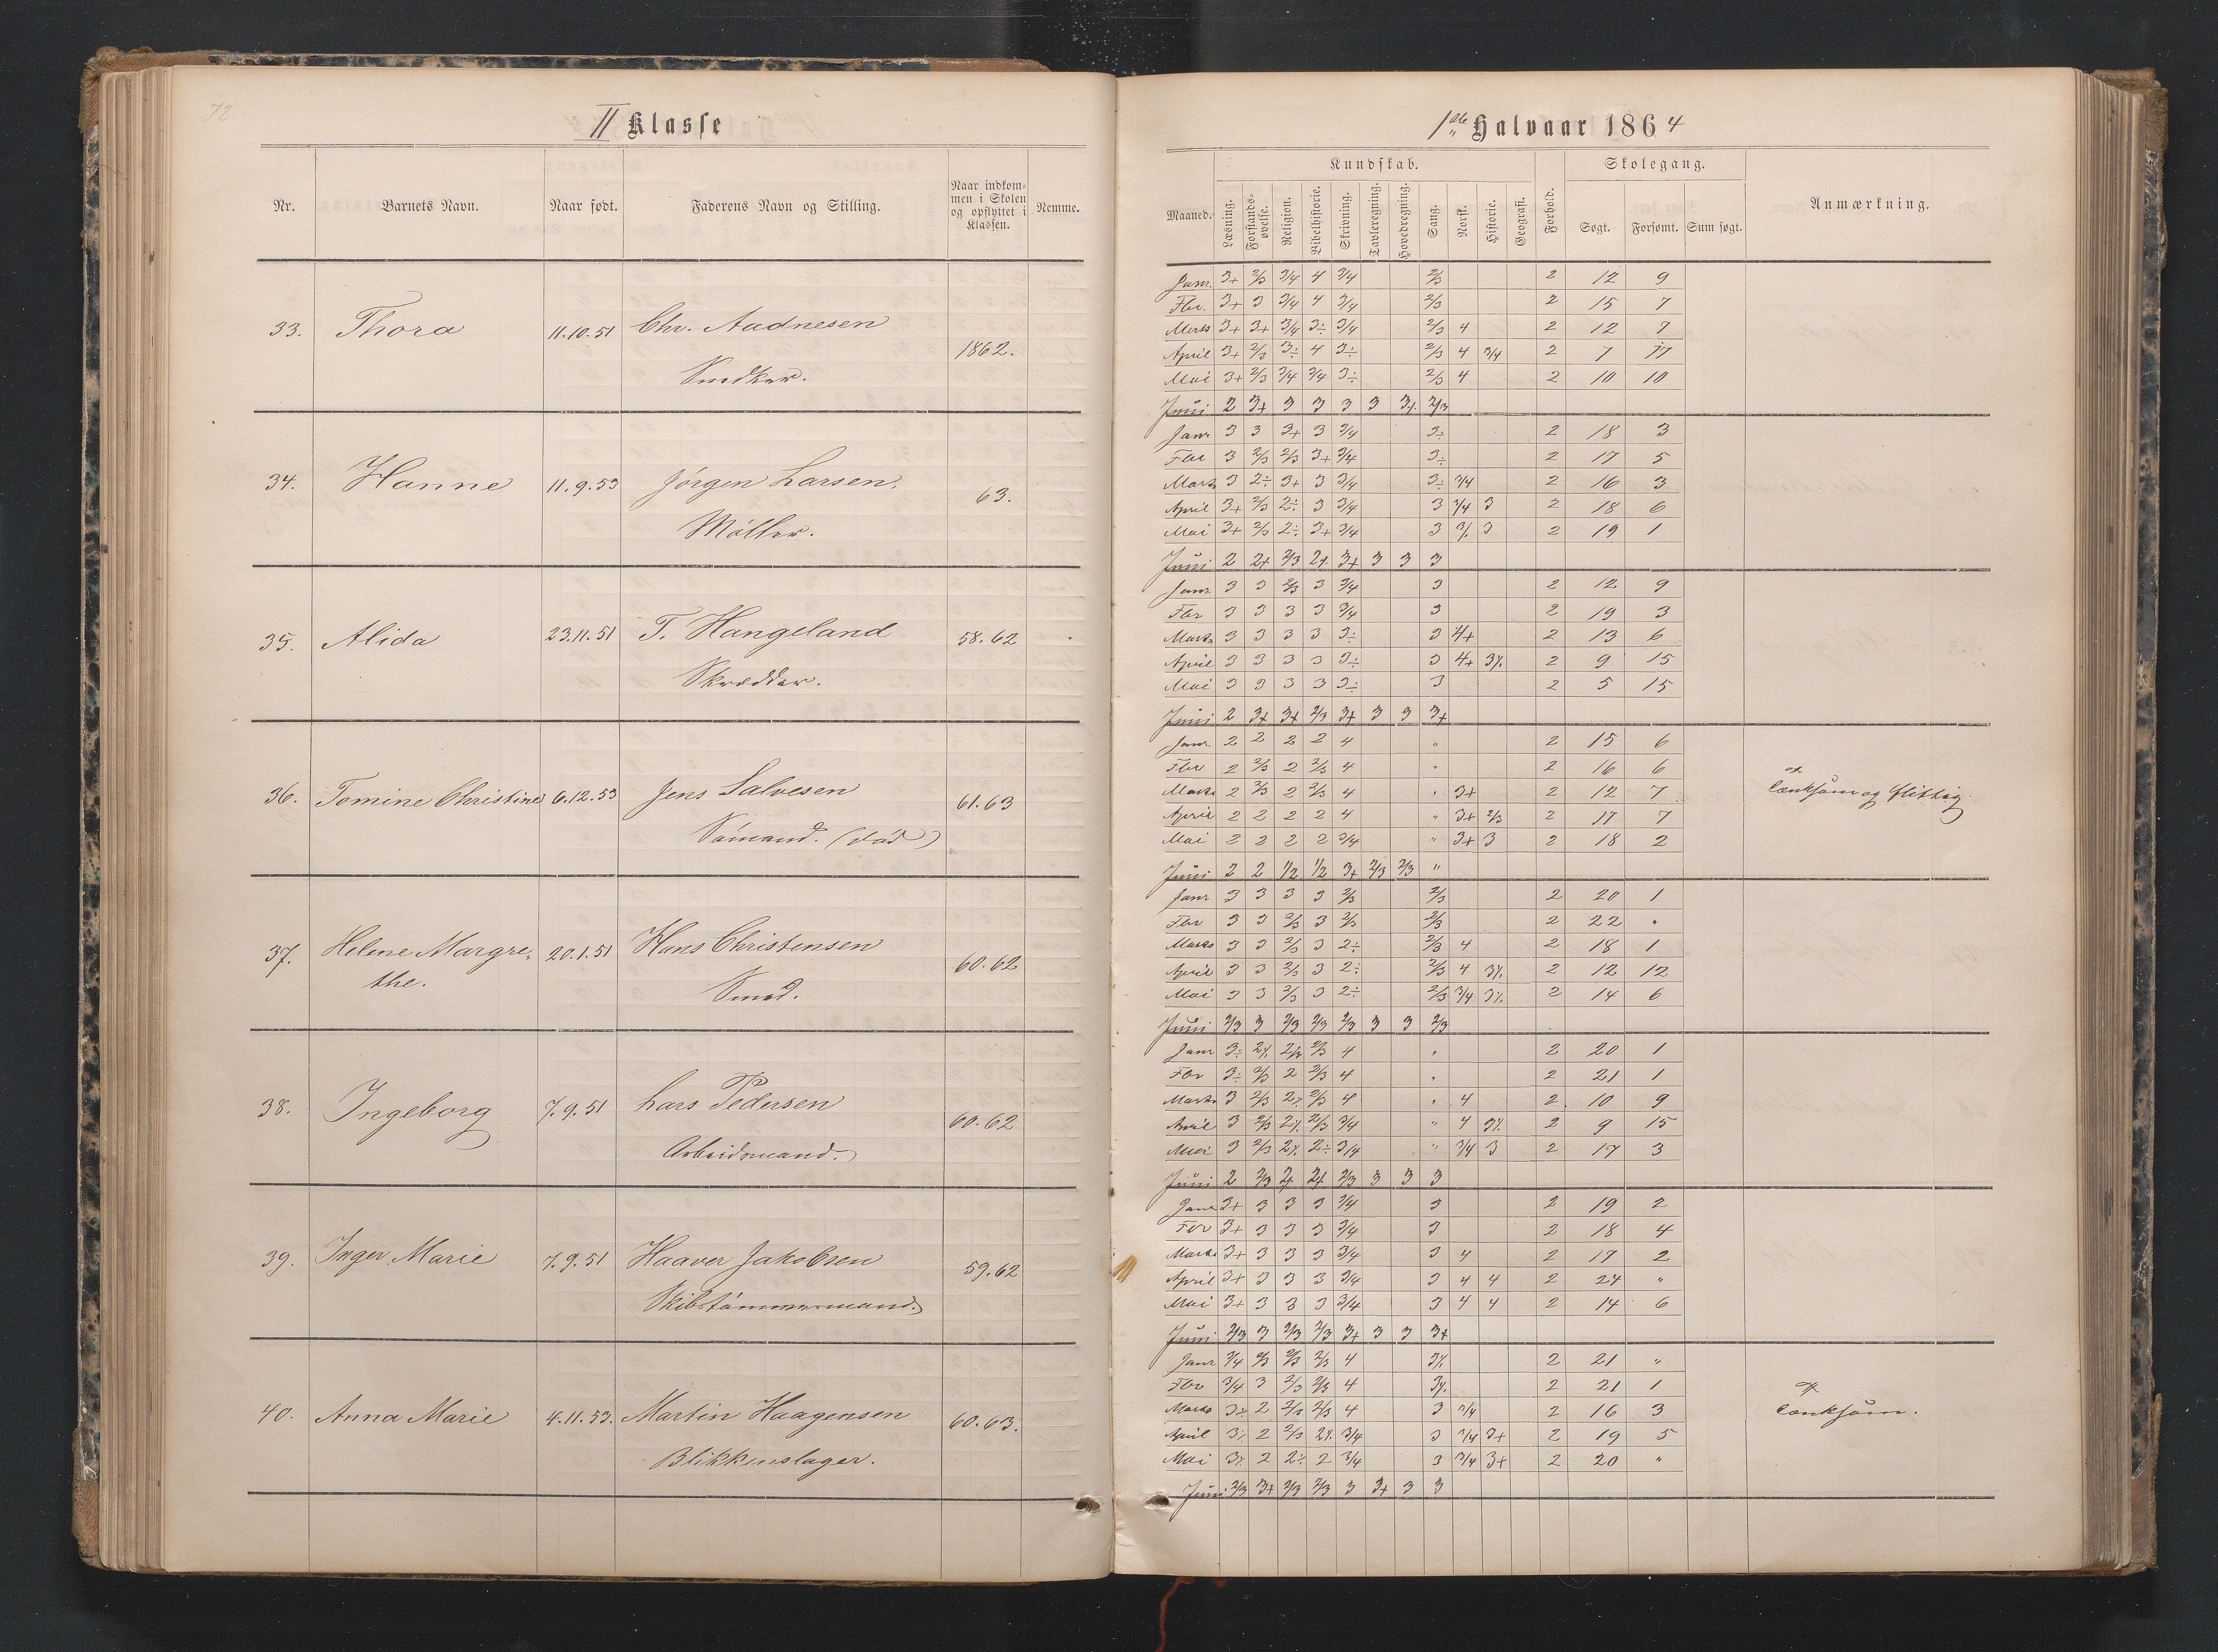 72.
II Klasse
Nr. Barnets Navn. Naar født. Faderens Navn og Stilling. Naar indkommen i Skolen og opflyttet i Klassen. Nemme.
33. Thora 11.10.51 Chr. Aadnesen 1862.
Snedker.
34. Hanne 11.9.53 Jörgen Larsen. 63.
Möller.
35. Alida 23.11.51 T. Hangeland 58.62
Skrædder.
36. Tomine Christine 6.12.53 Jens Salvesen 61.63
Sömand. (död)
37. Helene Margre- 20.1.51 Hans Christensen 60.62
the. Smed.
38. Ingeborg 7.9.51 Lars Pedersen 60.62
Arbeidsmand.
39. Inger Marie 7.9.51 Haaver Jakobsen 59.62
Skibstömmermand.
40. Anna Marie 4.11.53. Martin Haagensen 60.63.
Blikkenslager.
1ste Halvaar 1864
Maaned. Kundskab. Forhold. Skolegang. Anmærkning.
Læsning. Forstands-øvelse. Religion. Bibelhistorie. Skrivning. Tavleregning. Hovedregning. Sang. Norsk. Historie. Geografi. Søgt. Forsømt. Sum søgt.
Janr. 3+ 2/3 3/4 4 3/4 2/3 2 12 9
Fbr. 3+ 3 3/4 4 3/4 2/3 2 15 7
Marts 3+ 3+ 3/4 3÷ 3/4 2/3 4 2 12 7
April 3+ 2/3 3÷ 4 3÷ 2/3 4 3/4 2 7 17
Mai 3+ 2/3 3/4 3/4 3÷ 2/3 4 2 10 10
Juni 2 3+ 3 3 3 3 3% 2/3
Janr 3 3 3+ 3 3/4 3÷ 2 18 3
Fbr 3 2/3 2/3 3+ 3/4 3÷ 2 17 5
Marts 3 2÷ 3+ 3 3/4 3÷ 3/4 2 16 3
April 3+ 2/3 2÷ 3 3/4 3 3/4 3 2 18 6
Mai 3+ 2/3 2÷ 3+ 3/4 3 3% 3 2 19 1
Juni 2 2+ 2/3 2% 3+ 3 3 3
Janr 3 3 2/3 3 3/4 3 2 12 9
Fbr 3 3 3 3 3/4 3 2 19 3
Marts 3 3 3 3 3÷ 3 4+ 2 13 6
April 3 3 3 3 3÷ 3 4+ 3% 2 9 15
Mai 3 3 3 3 3÷ 3 2 5 15
Juni 2 3+ 3+ 2/3 3+ 3 3 3+
Janr 2 2 2 2 4 " 2 15 6
Fbr 2 2/3 2 2/3 4 " 2 16 6
Marts 2 2/3 2 2/3 4 " 3+ 2 12 7 Tænksom og flittig.
April 2 2 2 2 4 " 3+ 2/3 2 17 7
Mai 2 2 2 2 3/4 " 3+ 3 2 18 2
Juni 2 2 1/2 1/2 3+ 2/3 2/3 "
Janr 3 3 3 3 2/3 2/3 2 20 1
Fbr 3 3 2/3 3 2/3 2/3 2 22 "
Marts 3 3 2/3 3 2÷ 2/3 4 2 18 1
April 3 3 2/3 3 2÷ 2/3 4 3% 2 12 12
Mai 3 3 2/3 3 2÷ 2/3 3/4 3% 2 14 6
Juni 2/3 3 2/3 2/3 2/3 3 3 2/3
Janr 3÷ 2% 2/3 2/3 4 " 2 20 1
Fbr 3÷ 2/3 2 2/3 4 " 2 21 1
Marts 3 2/3 2% 2/3 4 " 4 2 10 9
April 3 2/3 2% 2/3 3/4 " 4 3% 2 9 15
Mai 3 2/3 2% 2÷ 3/4 " 3/4 3 2 17 3
Juni 2 2/3 2+ 2+ 2/3 3 3 3
Janr 3+ 3 3 3 3/4 3 2 19 2
Fbr 3+ 3 3 3 3/4 3 2 18 4
Marts 3+ 3 3 3 3/4 3 4 2 17 2
April 3+ 3 3 3 3/4 3 4 4 2 24 "
Mai 3+ 3 3 3 3/4 3 4 4 2 14 6
Juni 2/3 3 2/3 2/3 3+ 3 3 3+
Janr 3/4 2/3 2/3 2/3 4 3% 2 21 "
Fbr 3/4 3 2/3 2/3 4 3% 2 21 1
Marts 3÷ 2 2/3 2/3 4 3 3/4 2 16 3 Tænksom.
April 3% 2 2/3 2% 3/4 3 3/4 3+ 2 19 5
Mai 3% 2 2÷ 2 3/4 3 3/4 3+ 2 20 "
Juni 2/3 3+ 2/3 2/3 3 3+ 3 3